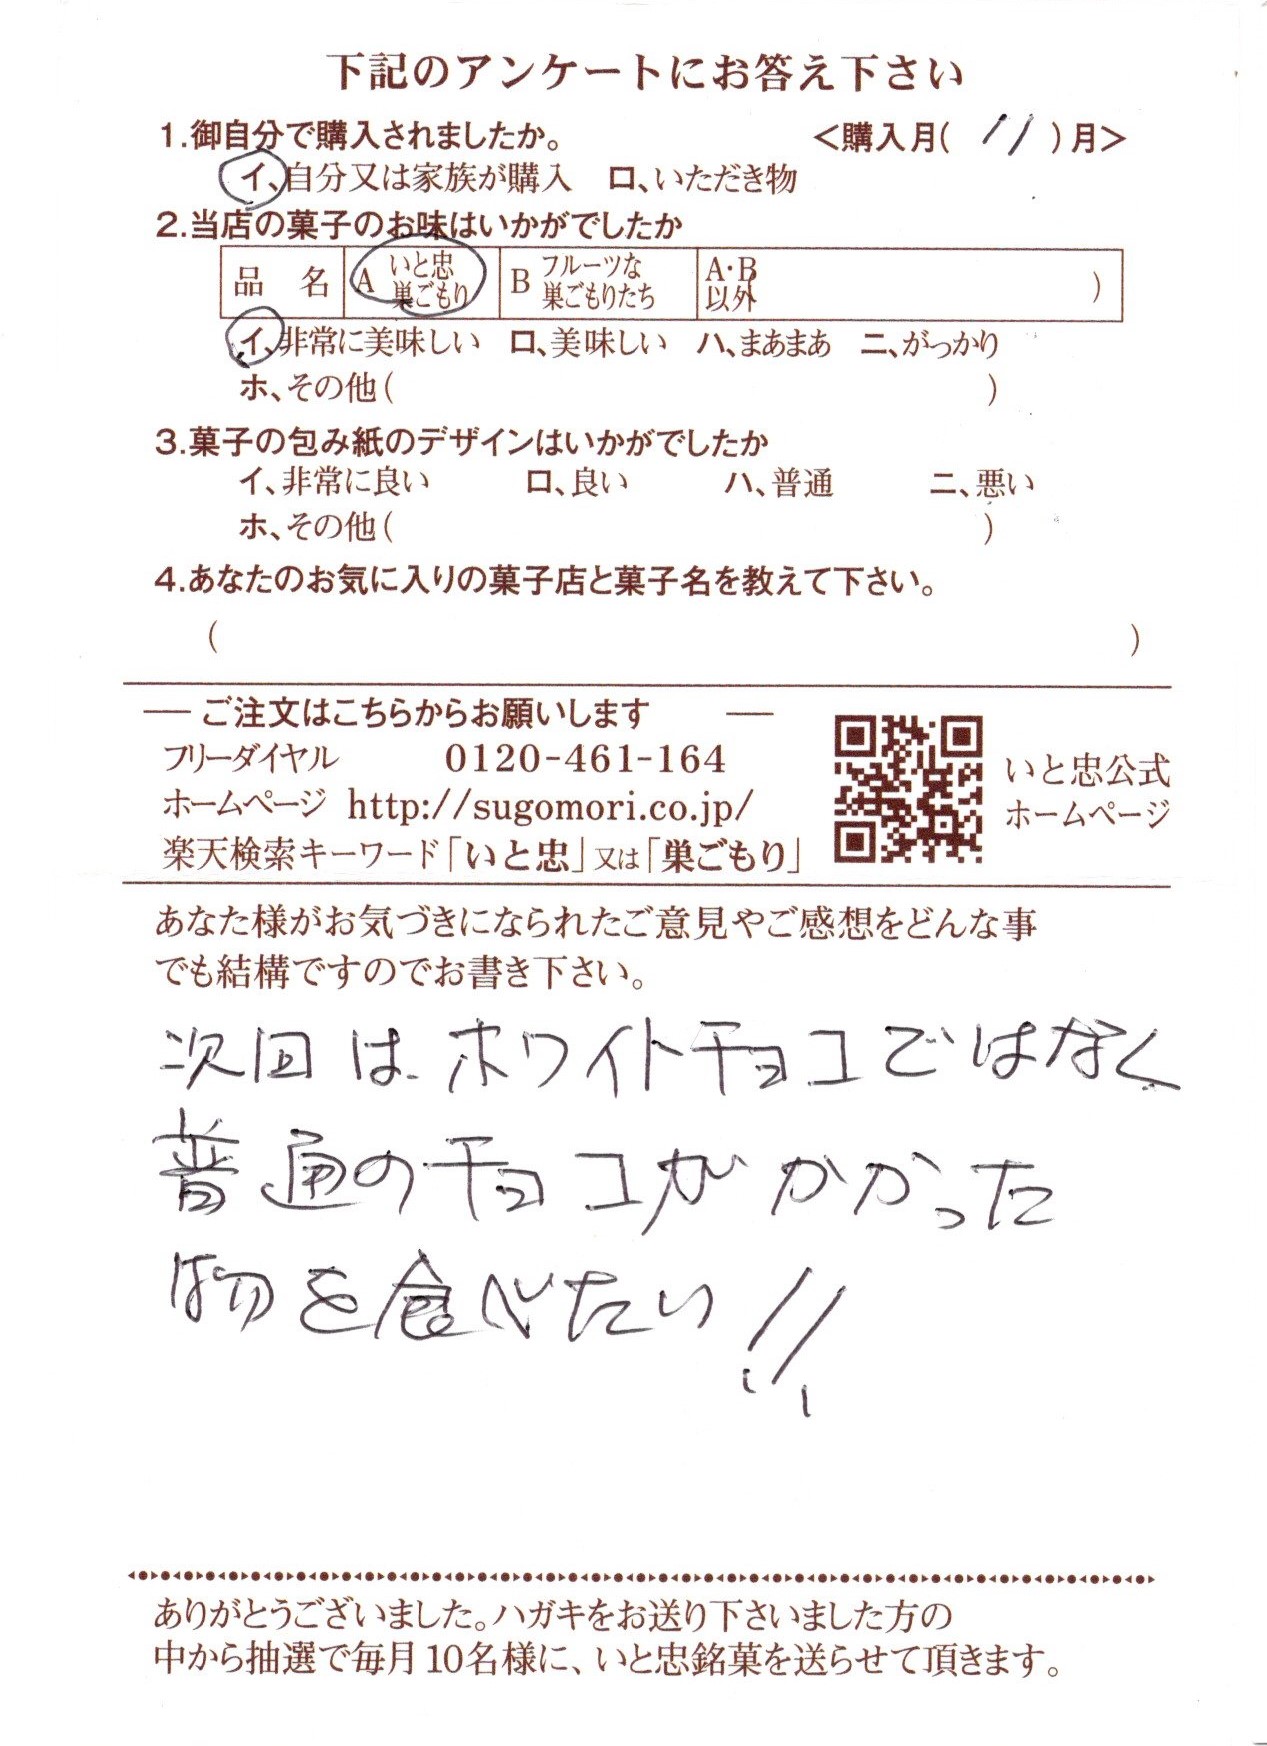 下記のアンケートにお答え下さい
1.御自分で購入されましたか。 <購入月( 11 )月>
イ、自分又は家族が購入 ロ、いただき物
2.当店の菓子のお味はいかがでしたか
品 名 A いと忠 巣ごもり B フルーツな 巣ごもりたち A・B 以外 )
イ、非常に美味しい ロ、美味しい ハ、まあまあ ニ、がっかり
ホ、その他( )
3.菓子の包み紙のデザインはいかがでしたか
イ、非常に良い ロ、良い ハ、普通 ニ、悪い
ホ、その他( )
4.あなたのお気に入りの菓子店と菓子名を教えて下さい。
( )
― ご注文はこちらからお願いします ―
フリーダイヤル 0120-461-164
ホームページ http://sugomori.co.jp/
楽天検索キーワード「いと忠」又は「巣ごもり」
いと忠公式
ホームページ
あなた様がお気づきになられたご意見やご感想をどんな事
でも結構ですのでお書き下さい。
次回は、ホワイトチョコではなく
普通のチョコがかかった
物を食べたい!!
ありがとうございました。ハガキをお送り下さいました方の
中から抽選で毎月10名様に、いと忠銘菓を送らせて頂きます。